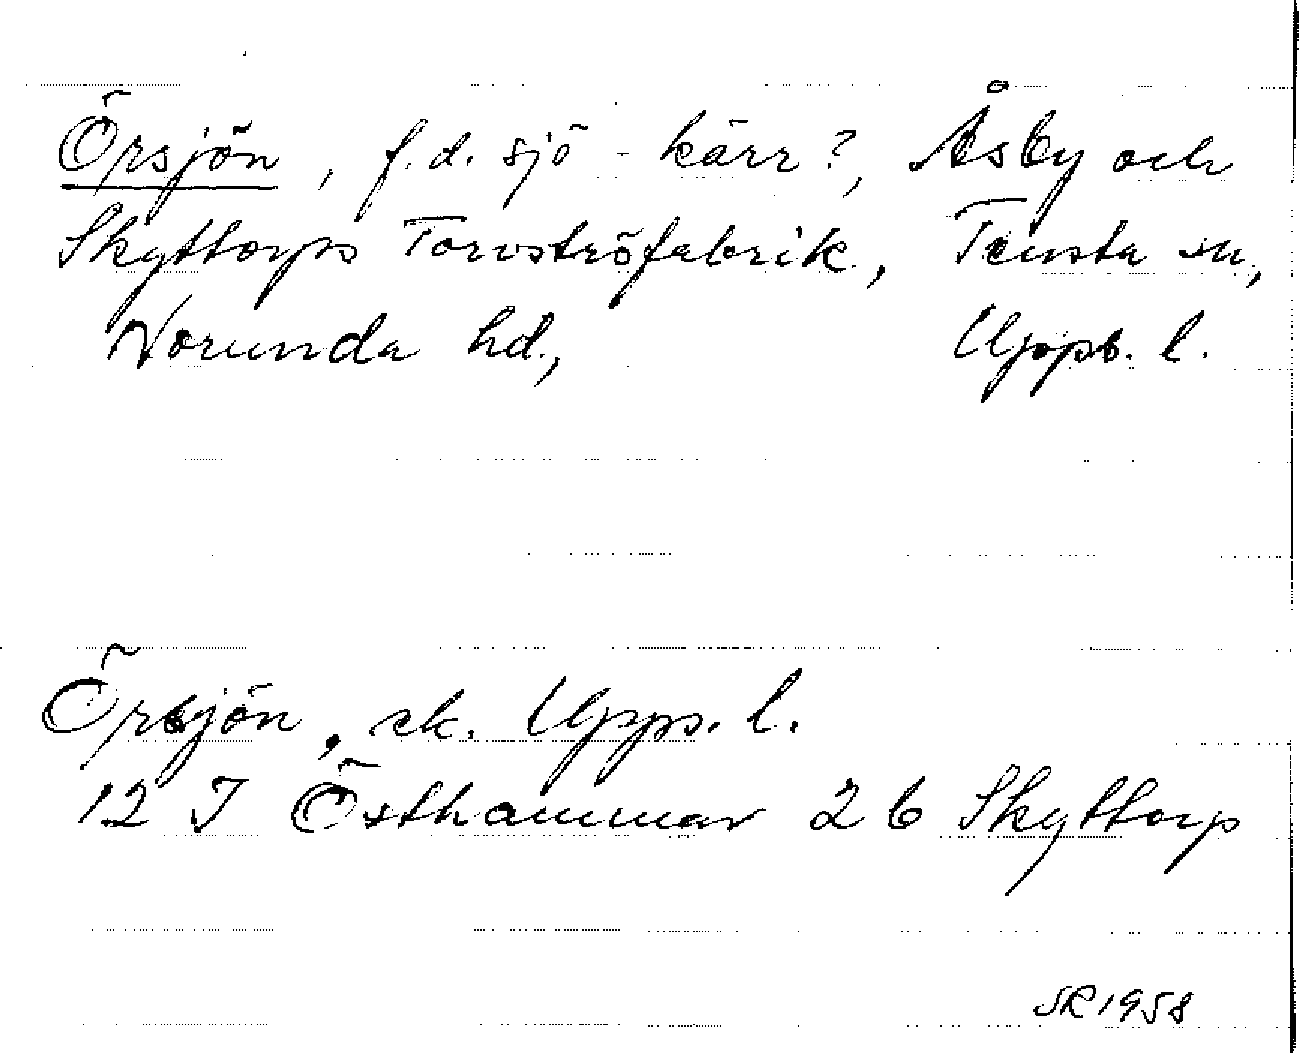 Örsjön, f.d. sjö - kärr?, Åsby och
Skyttorps Torvströfabrik, Tensta sn,
Norunda hd., Upps. l.
Örsjön, ek. Upps. l.
12 I Östhammar 2 b Skyttorp
SR 1958